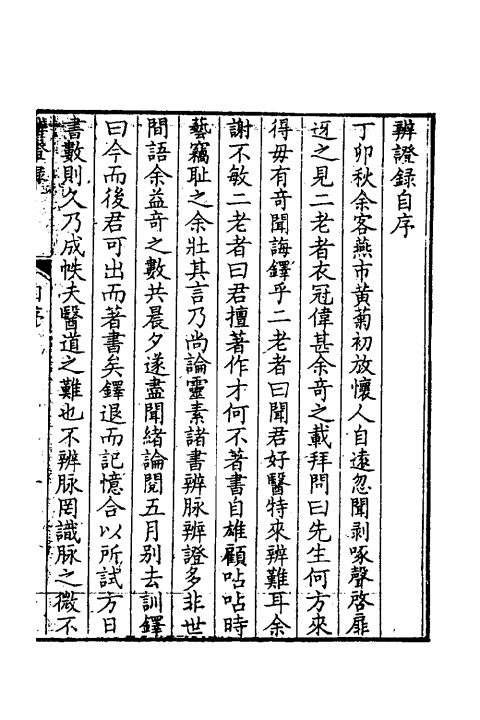 辨證錄自序
丁卯秋余客燕市黄菊初放懷人自遠忽聞剥啄聲啓扉
迓之見二老者衣冠偉甚余奇之載拜問曰先生何方來
得毋有奇聞誨鐸乎二老者曰聞君好醫特來辨難耳余
謝不敏二老者曰君擅著作才何不著書自雄顧呫呫時
藝竊耻之余壯其言乃尚論靈素諸書辨脉辨證多非世
間語余益奇之數共晨夕遂盡聞緒論閱五月别去訓鐸
曰今而後君可出而著書矣鐸退而記憶合以所試方日
書數則久乃成帙夫醫道之難也不辨脉罔識脉之微不